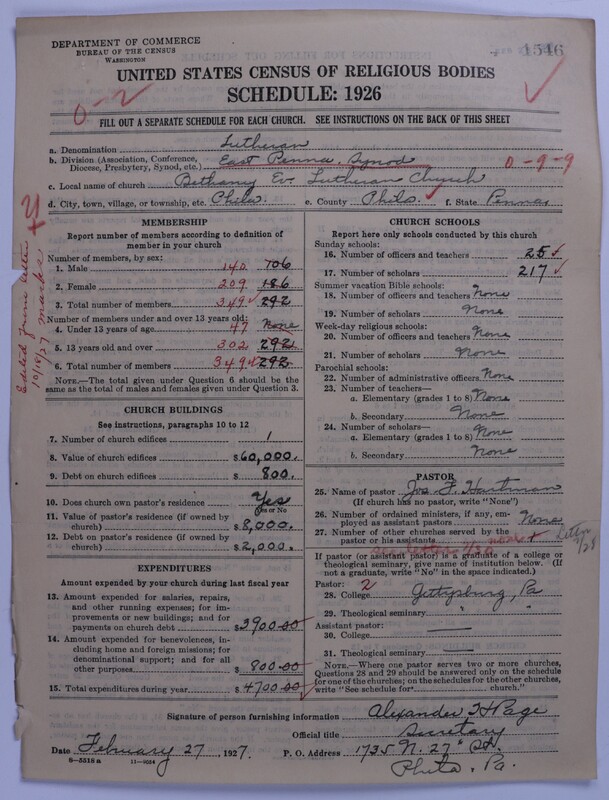 DEPARTMENT OF COMMERCE
BUREAU OF THE CENSUS
WASHINGTON
1546
UNITED STATES CENSUS OF RELIGIOUS BODIES
SCHEDULE: 1926
0-2
FILL OUT A SEPARATE SCHEDULE FOR EACH CHURCH. SEE INSTRUCTIONS ON THE BACK OF THIS SHEET
a. Denomination Lutheran
b. Division (Association, Conference, Diocese, Presbytery, Synod, etc.) East Penna. Synod 0-9-9
c. Local name of church Bethany Ev. Lutheran Church
d. City, town, village, or township, etc. Phila. e. County Phila. f. State Penna.
Edited from letter
10/18/27 marks
MEMBERSHIP
Report number of members according to definition of
member in your church
Number of members, by sex:
1. Male 140 106
2. Female 209 186
3. Total number of members 349 292
Number of members under and over 13 years old:
4. Under 13 years of age 47 None
5. 13 years old and over 302 292
6. Total number of members 349 292
NOTE.—The total given under Question 6 should be the
same as the total of males and females given under Question 3.
CHURCH BUILDINGS
See instructions, paragraphs 10 to 12
7. Number of church edifices 1
8. Value of church edifices $60,000.
9. Debt on church edifices $ 800.
10. Does church own pastor's residence Yes
Yes or No
11. Value of pastor's residence (if owned by
church) $8,000.
12. Debt on pastor's residence (if owned by
church) $2,000.
EXPENDITURES
Amount expended by your church during last fiscal year
13. Amount expended for salaries, repairs,
and other running expenses; for im-
provements or new buildings; and for
payments on church debt $3900.00
14. Amount expended for benevolences, in-
cluding home and foreign missions; for
denominational support; and for all
other purposes $ 800.00
15. Total expenditures during year $ 4700.00
CHURCH SCHOOLS
Report here only schools conducted by this church
Sunday schools:
16. Number of officers and teachers 25
17. Number of scholars 217
Summer vacation Bible schools:
18. Number of officers and teachers None
19. Number of scholars None
Week-day religious schools:
20. Number of officers and teachers None
21. Number of scholars None
Parochial schools:
22. Number of administrative officers None
23. Number of teachers—
a. Elementary (grades 1 to 8) None
b. Secondary None
24. Number of scholars—
a. Elementary (grades 1 to 8) None
b. Secondary None
PASTOR
25. Name of pastor Jos. F. Hartman
(If church has no pastor, write "None")
26. Number of ordained ministers, if any, em-
ployed as assistant pastors None
27. Number of other churches served by the
pastor or his assistants none
If pastor (or assistant pastor) is a graduate of a college or
theological seminary, give name of institution below. (If
not a graduate, write "No" in the space indicated.)
Pastor: 2
28. College Gettysburg, Pa
29. Theological seminary
Assistant pastor:
30. College
31. Theological seminary
NOTE.—Where one pastor serves two or more churches,
Questions 28 and 29 should be answered only on the schedule
for one of the churches; on the schedules for the other churches,
write "See schedule for church."
Signature of person furnishing information Alexander H Page
Official title Secretary
Date February 27, 1927. P. O. Address 1735 N. 27" St.
Phila. Pa.
8—5518 a 11—9024